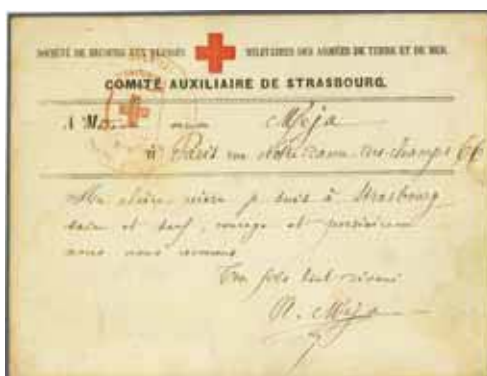 SOCIÉTÉ DE SECOURS AUX BLESSÉS MILITAIRES DES ARMÉES DE TERRE ET DE MER.
COMITÉ AUXILIAIRE DE STRASBOURG.
A M Meja
à Paris rue Notre Dame des champs 66
Ma chère mère je suis à Strasbourg
sain et sauf, courage et
nous nous
Ton fils
A. Meja